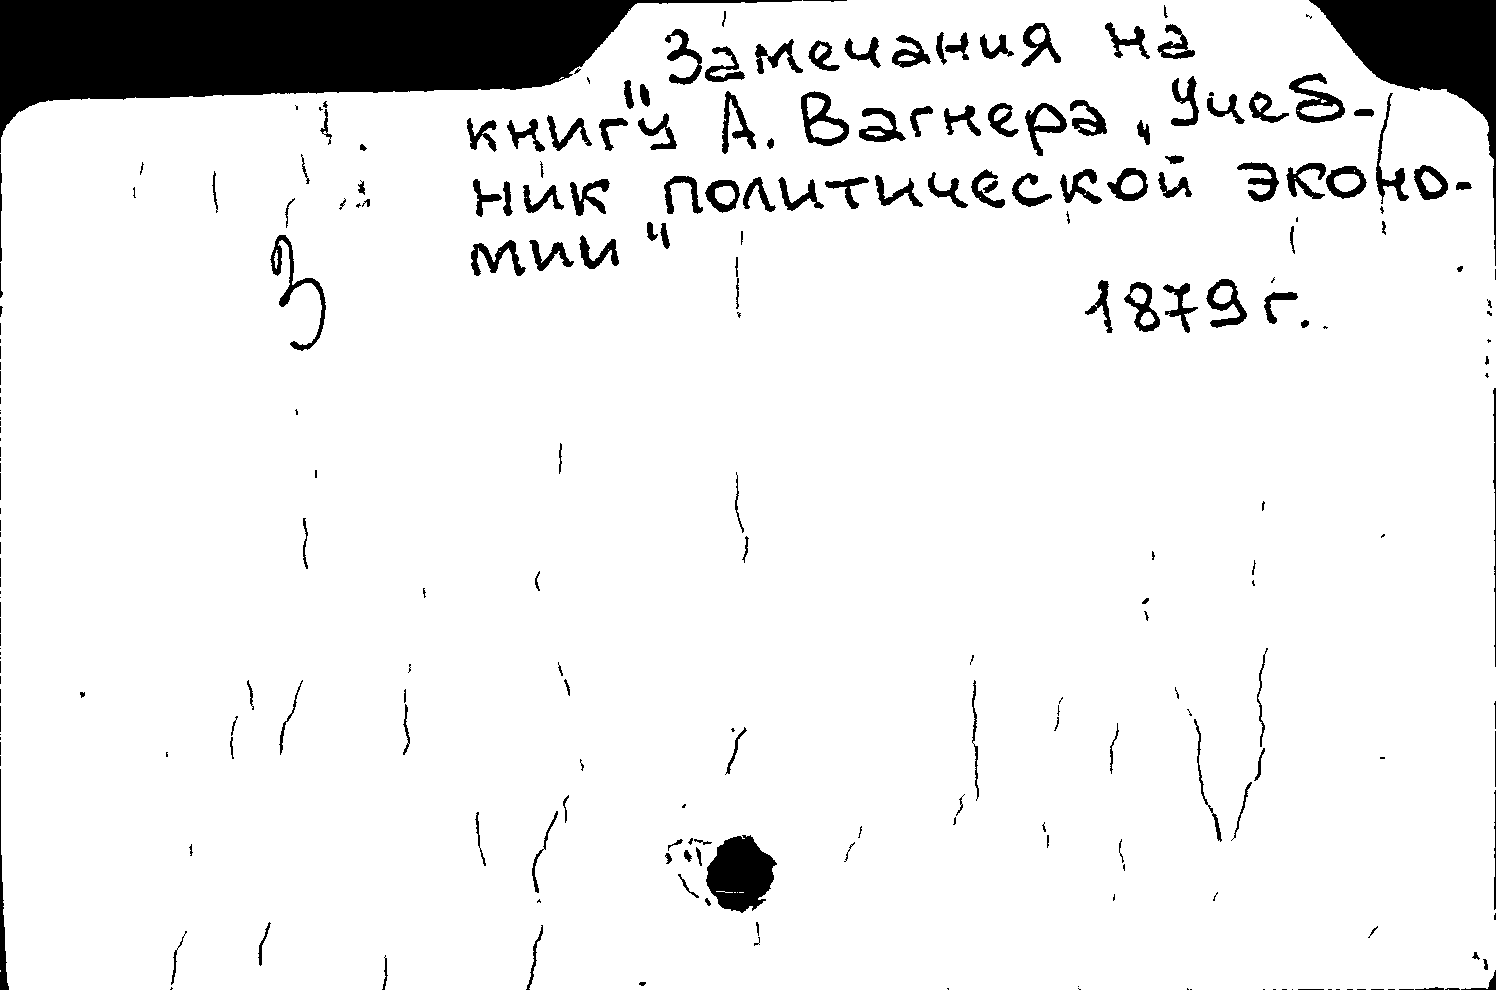 Замечания на
"книгу А. Вагнера „Учеб-
ник политической эконо-
мии"
З
1879 г.